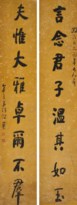 言念君子溫其如玉
夫惟大雅卓爾不群